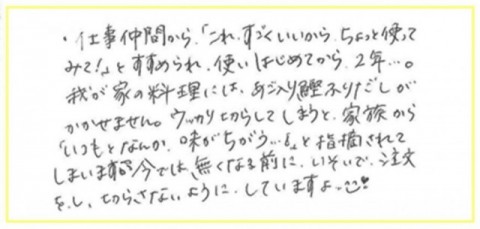 ・仕事仲間から、「これ、すごくいいから、ちょっと使って
みて!」とすすめられ、使いはじめてから、2年…。
我が家の料理には、あご入り鰹ふりだしが
かかせません。ウッカリ切らしてしまうと、家族から
「いつもとなんか、味がちがう…」と指摘されて
しまいます。今では、無くなる前に、いそいで、注文
をし、切らさないように、していますよ